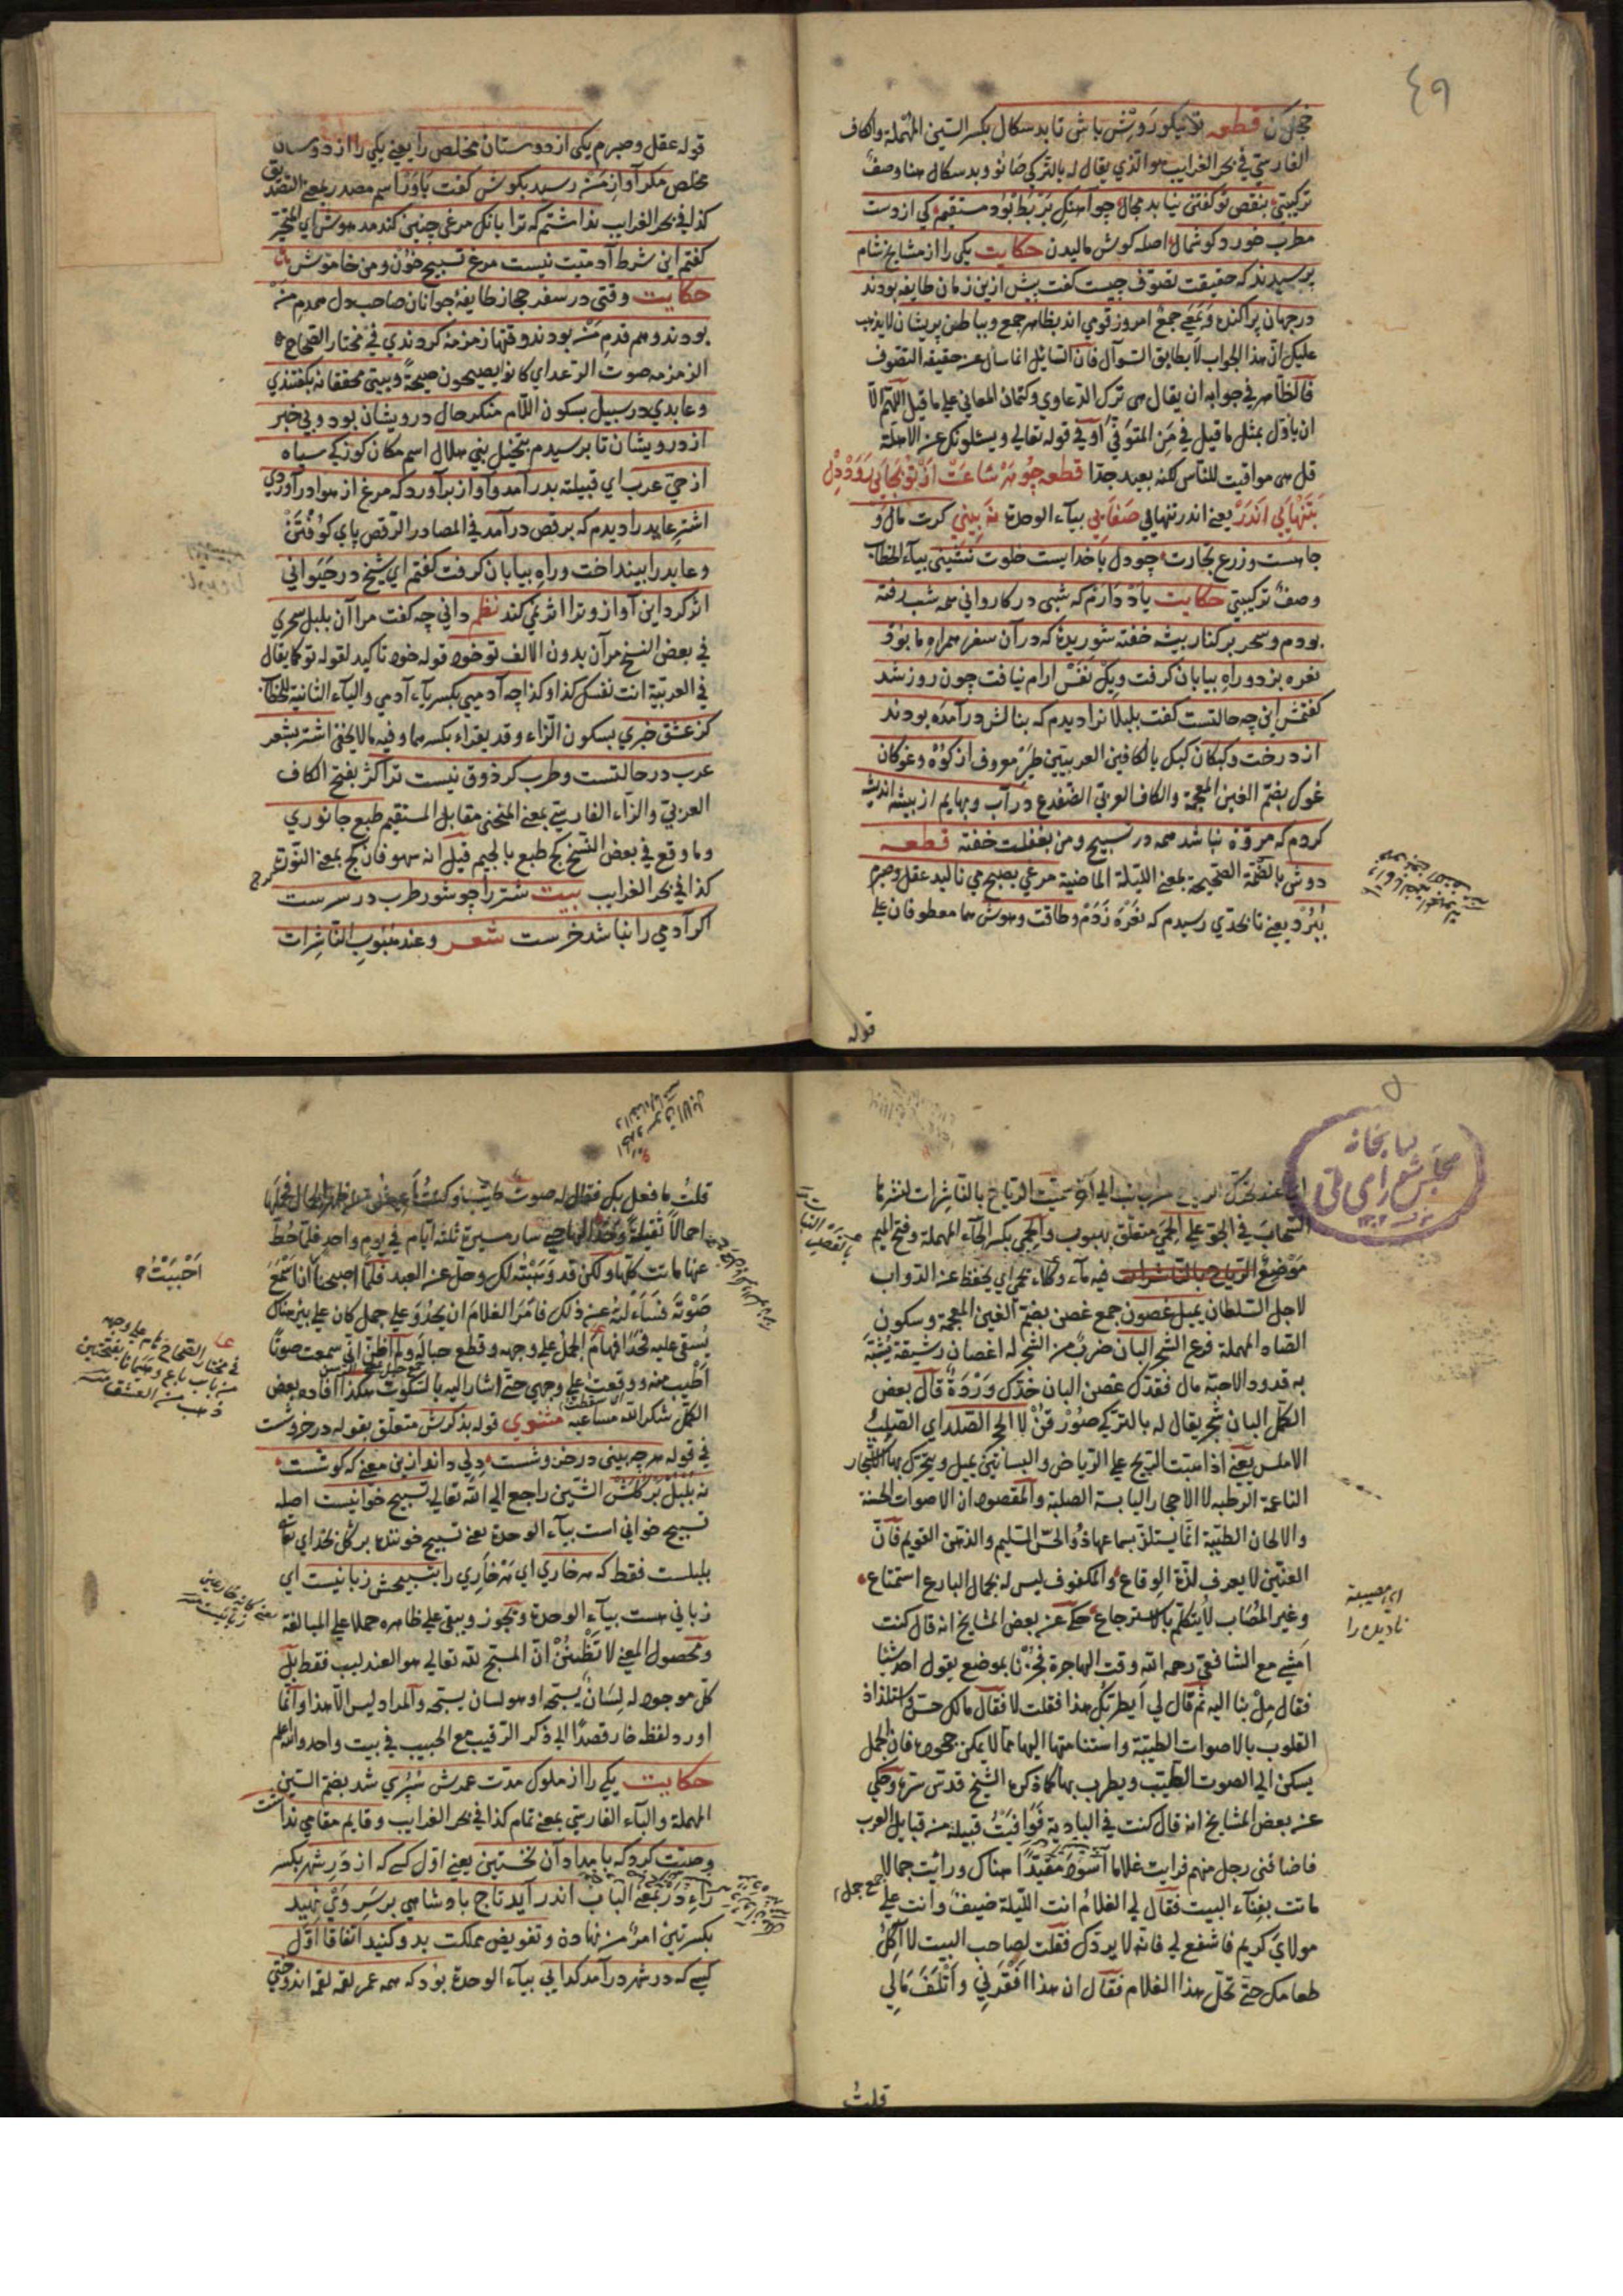 ٤٩
خجل كن قطعه تو نيكو روش باش تا بد سكال بكسر السّين المهملة والكاف
الفارسيّ في بحر الغرايب هو الّذي يقال له بالتّركي صانو وبد سكال هنا وصف
تركيبيّ بنقص تو گفتن نيابد مجال چو آهنك بربط بود مستقيم كي از دست
مطرب خورد كوشمال اصله كوش ماليدن حكايت يكى را از مشايخ شام
پرسيدند كه حقيقت تصوّف چيست كفت پيش ازين زمان طايفه بودند
در جهان پراكنده وبمعني جمع امروز قومي اند بظاهر جمع وبباطن پريشان لا يذهب
عليك انّ هذا الجواب لا يطابق السّوال فانّ السّائل انما سأل عن حقيقة التصوّف
فالظّاهر في جوابه ان يقال هي ترك الدّعاوي وكتمان المعاني على ما قيل اللّهمّ الّا
ان يأوّل بمثل ما قيل في من المتوفّي أو في قوله تعالى ويسئلونك عن الاهلّة
قل هي مواقيت للنّاس لكنه بعيد جدّا قطعه چو هر ساعت از تو بجايي رود دل
بتنهايي اندر يعنى اندر تنهايي صفايي بياء الوحدة نه بيني كرت مال و
جاهست وزرع تجارت چو دل با خدايست خلوت نشيني بياء الخطاب
وصف تركيبيّ حكايت ياد دارم كه شبي در كارواني همه شب رفته
بودم وسحر بر كنار بيشه خفته شوريدۀ كه در آن سفر همراه ما بود
نعره بزد وراه بيابان كرفت ويك نفس ارام نيافت چون روز شد
كفتمش اين چه حالتست كفت بلبلانرا ديدم كه بنالش درآمده بودند
از درخت وكبكان كبك بالكافين العربيتين طير معروف از كوه وغوكان
غوك بضمّ الغين المعجمة والكاف العربي الضّفدع در آب وبهايم از بيشه انديشه
كردم كه مروّة نباشد همه در تسبيح ومن بغفلت خفته قطعه
دوش بالضّمّة الصّحيحة بمعنى اللّيلة الماضية مرغي بصبح مي ناليد عقل وصبرم
ببرد يعنى تا بحدّي رسيدم كه نعره زدم وطاقت وهوش هما معطوفان على
قوله
قوله عقل وصبرم يكى از دوستان مخلص را يعنى يكى را از دوستان
مخلص مكر آواز من رسيد بكوش كفت باور اسم مصدر بمعنى التصديق
كذا في بحر الغرايب نداشتم كه ترا بانك مرغي چنين كند مدهوش اي المتحيّر
كفتم اين شرط آدميت نيست مرغ تسبيح خوان ومن خاموش
حكايت وقتى در سفر حجاز طايفۀ جوانان صاحب دل همدم من
بودند وهم قدم من بودند وقتها زمزمه كردندي في مختار الصّحاح
الزمزمه صوت الرّعد اي كانوا يصيحون صيحة وبيتي محققانه بكفتندي
وعابدي در سبيل بسكون اللّام منكر حال درويشان بود وبي خبر
از درويشان تا برسيدم بنخيل بني هلال اسم مكان كوزكي سياه
از حيّ عرب اي قبيلته بدرآمد وآواز برآورد كه مرغ از هوا درآوردي
اشتر عابد را ديدم كه برقص درآمد في المصادر الرّقص پاي كوفتن
وعابد را بينداخت وراه بيابان كرفت كفتم اي شيخ در حيواني
اثر كرد اين آواز وترا اثر نمي كند نظم داني چه كفت مرا آن بلبل سحري
في بعض النّسخ مر آن بدون الالف تو خود قوله خود تاكيد لقوله تو كما يقال
في العربيّة انت نفسك كذا وكذا چه آدميي بكسر ياء آدمي والياء الثانية للخطاب
كز عشق خبري بسكون الزّاء وقد يقراء بكسرها وفيه ما لا يخفى اشتر بشعر
عرب در حالتست وطرب كر ذوق نيست ترا كژ بفتح الكاف
العربي والزّاء الفارسيّ بمعنى المنحني مقابل المستقيم طبع جانوري
وما وقع في بعض النّسخ كج طبع بالجيم قيل انه سهو فان كج بمعنى
كذا في بحر الغرايب بيت شتر را چو شور طرب در سرست
اكر آدمي را نباشد خرست شعر وعند هبوب النّاشرات
كتابخانه
مجلس شوراى ملى
السّحاب في الجوّ على الحمى متعلّق بهبوب والحمى بكسر الحاء المهملة وفتح الميم
موضع فيه ماء وكلاء يحمى اي يحفظ عن الدّواب
لاجل السّلطان يميل غصون جمع غصن بضمّ الغين المعجمة وسكون
الصّاد المهملة فرع الشّجر البان ضرب من الشّجر له اغصان رشيقة يشبّه
به قدود الاحبّة مال فقدّك غصن البان خدّك وردة قال بعض
الكمّل البان شجر يقال له بالتركي صورقون لا الحجر الصّلد اي الصّلب
الاملس يعنى اذا هبّت الرّيح على الرّياض والبساتين يميل ويتحرّك بها الاشجار
النّاعمة الرّطبه لا الاحجار اليابسة الصلبة والمقصود ان الاصوات الحسنة
والالحان الطّيّبة انّما يستلذّ بسماعها ذو الحسّ السّليم والذّهن القويم فانّ
العنّين لا يعرف لذّة الوقاع والمكفوف ليس له بجمال البارع استمتاع
وغير المصاب لا يتكلّم بالاسترجاع حكى عن بعض المشايخ انه قال كنت
امشي مع الشّافعي رحمه اللّه وقت الهاجرة فجزنا بموضع يقول احد شيئا
فقال مل بنا اليه ثمّ قال لي أيطربك هذا فقلت لا فقال مالك حسّ في استلذاذ
القلوب بالاصوات الطيّبة واستنامتها اليها ممّا لا يمكن جحوده فان الجمل
يسكن الى الصوت الطّيّب ويطرب بها كما ذكره الشّيخ قدّس سرّه وحكي
عن بعض المشايخ انه قال كنت في البادية فوافيت قبيلة من قبايل العرب
فاضافني رجل منهم فرايت غلاما اسود مقيّدا هناك ورائت جمالا
ماتت بفناء البيت فقال لي الغلام انت اللّيلة ضيف وانت على
مولاي كريم فاشفع لي فانّه لا يردّك فقلت لصاحب البيت لا آكل
طعامك حتى تحلّ هذا الغلام فقال ان هذا افقرني واتلف مالي
جمع جمل
اي مصيبة
ناديده را
قلت
قلت ما فعل بك فقال له صوت طيّب وكنت اعيش من ظهر الجمال فحملها
احمالا ثقيلة وحدا لها حتى سار مسيرة ثلثة ايّام في يوم واحد فلمّا حطّ
عنها ماتت كلّها ولكن قد وهبته لك وحلّ عنه العيد فلمّا اصبحنا انا اسمع
صوته فسأءلته عن ذلك فامر الغلام ان يحدو على جمل كان على بئر هناك
يستقى عليه فحدا فهام الجمل على وجهه وقطع حباله ولم اظنّ انّي سمعت صوتا
اطيب منه ووقعت على وجهي حتى اشار اليه بالسّكوت هكذا افاده بعض
الكمّل شكر اللّه مساعيه مثنوي قوله بذكرش متعلّق بقوله در خروشست
في قوله هرچه بيني در خروشست دلي داند ازين معنى كه كوشست
نه بلبل بر كلش الشّين راجع الى اللّه تعالى تسبيح خوانيست اصله
تسبيح خواني است بياء الوحدة يعنى تسبيح خوننده بر كل خداي تعالى
بلبلست فقط كه هر خاري اي هر خاري را بتسبيحش زبانيست اي
زباني هست بياء الوحدة ويجوز ويبقى على ظاهره حملا على المبالغة
ومحصول المعنى لا تظننّ انّ المسبّح للّه تعالى هو العندليب فقط بل
كلّ موجود له لسان يسبّحه او هو لسان يسبّحه والمراد ليس الّا هذا وانّما
اورد لفظه خار قصدا الى ذكر الرّقيب مع الحبيب في بيت واحد واللّه اعلم
حكايت يكى را از ملوك مدت عمرش سپري شد بضمّ السّين
المهملة والباء الفارسيّ بمعنى تمام كذا في بحر الغرايب وقايم مقامي نداشت
وصيّت كرد كه بامدادان نخستين يعنى اوّل كسى كه از در شهر بكسر
راء در بمعنى الباب اندر آيد تاج پادشاهي بر سر وي نهيد
بكسرتين امر من نهادن وتفويض مملكت بدو كنيد اتّفاقا اوّل
كسي كه در شهر درآمد كدايي بياء الوحدة بود كه همه عمر لقمه لقمه اندوختي
احببت
في مختار الصّحاح هام على وجهه